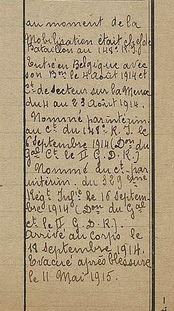 au moment de la
Mobilisation était chef de
Bataillon au 148e R.I.
Entré en Belgique avec
son Bon le 4 Août 1914 et
Ct de secteur sur la Meuse
du 4 au 23 Août 1914.
Nommé par intérim
au Ct du 148e R.I. le
6 septembre 1914 (Don du
Gal Ct le II G.D.R.)
Nommé du Ct par
intérim du 289ème
Régt Infie le 16 Septem-
bre 1914 (Don du Gal
Ct le II G.D.R.)
Arrivé au Corps le
18 septembre 1914.
Evacué après blessure
le 11 Mai 1915.